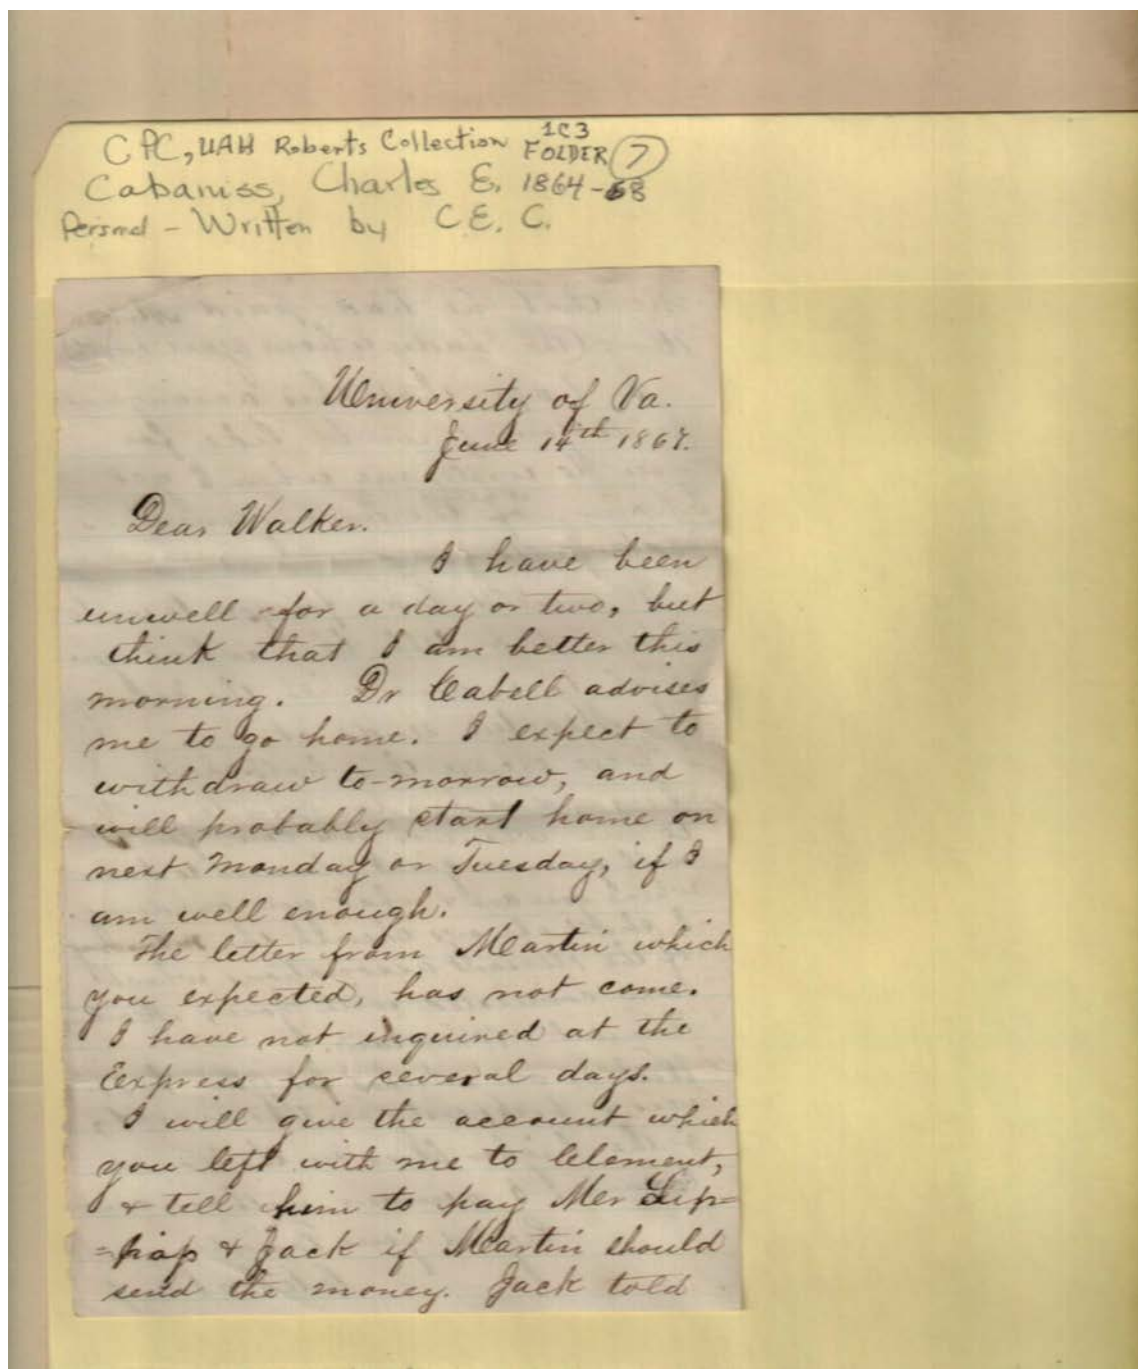 CPC, UAH Roberts Collection 1C3
FOLDER 7
Cabaniss, Charles E. 1864-68
Personal - Written by C.E.C.
University of Va.
June 14th 1867.
Dear Walker.
I have been
unwell for a day or two, but
think that I am better this
morning. Dr Cabell advises
me to go home. I expect to
withdraw to-morrow, and
will probably start home on
next Monday or Tuesday, if I
am well enough.
The letter from Martin which
you expected, has not come.
I have not inquired at the
Express for several days.
I will give the account which
you left with me to Clement,
& tell him to pay Mr Lip=
& Jack if Martin should
send the money. Jack told